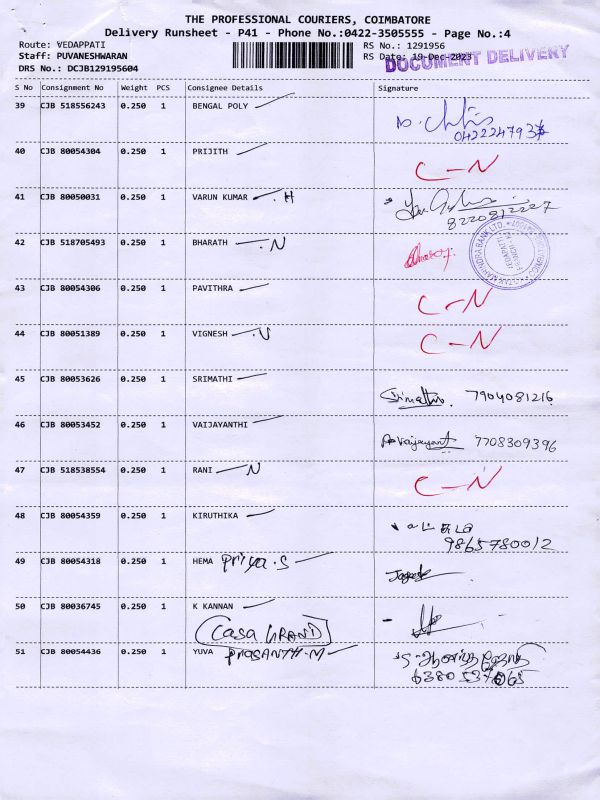 THE PROFESSIONAL COURIERS, COIMBATORE
Delivery Runsheet - P41 - Phone No.:0422-3505555 - Page No.:4
Route: VEDAPPATI RS No.: 1291956
Staff: PUVANESHWARAN RS Date: 19-Dec-2023
DOCUMENT DELIVERY
DRS No.: DCJB129195604
S No Consignment No Weight PCS Consignee Details Signature
39 CJB 518556243 0.250 1 BENGAL POLY
40 CJB 80054304 0.250 1 PRIJITH C-N
41 CJB 80050031 0.250 1 VARUN KUMAR .H
8220812227
42 CJB 518705493 0.250 1 BHARATH .N
43 CJB 80054306 0.250 1 PAVITHRA C-N
44 CJB 80051389 0.250 1 VIGNESH .N C-N
45 CJB 80053626 0.250 1 SRIMATHI Srimathi. 7904081216
46 CJB 80053452 0.250 1 VAIJAYANTHI 7708309396
47 CJB 518538554 0.250 1 RANI N C-N
48 CJB 80054359 0.250 1 KIRUTHIKA
9865780012
49 CJB 80054318 0.250 1 HEMA Priya.S
50 CJB 80036745 0.250 1 K KANNAN
Casa GRAND
51 CJB 80054436 0.250 1 YUVA PRASANTH.M